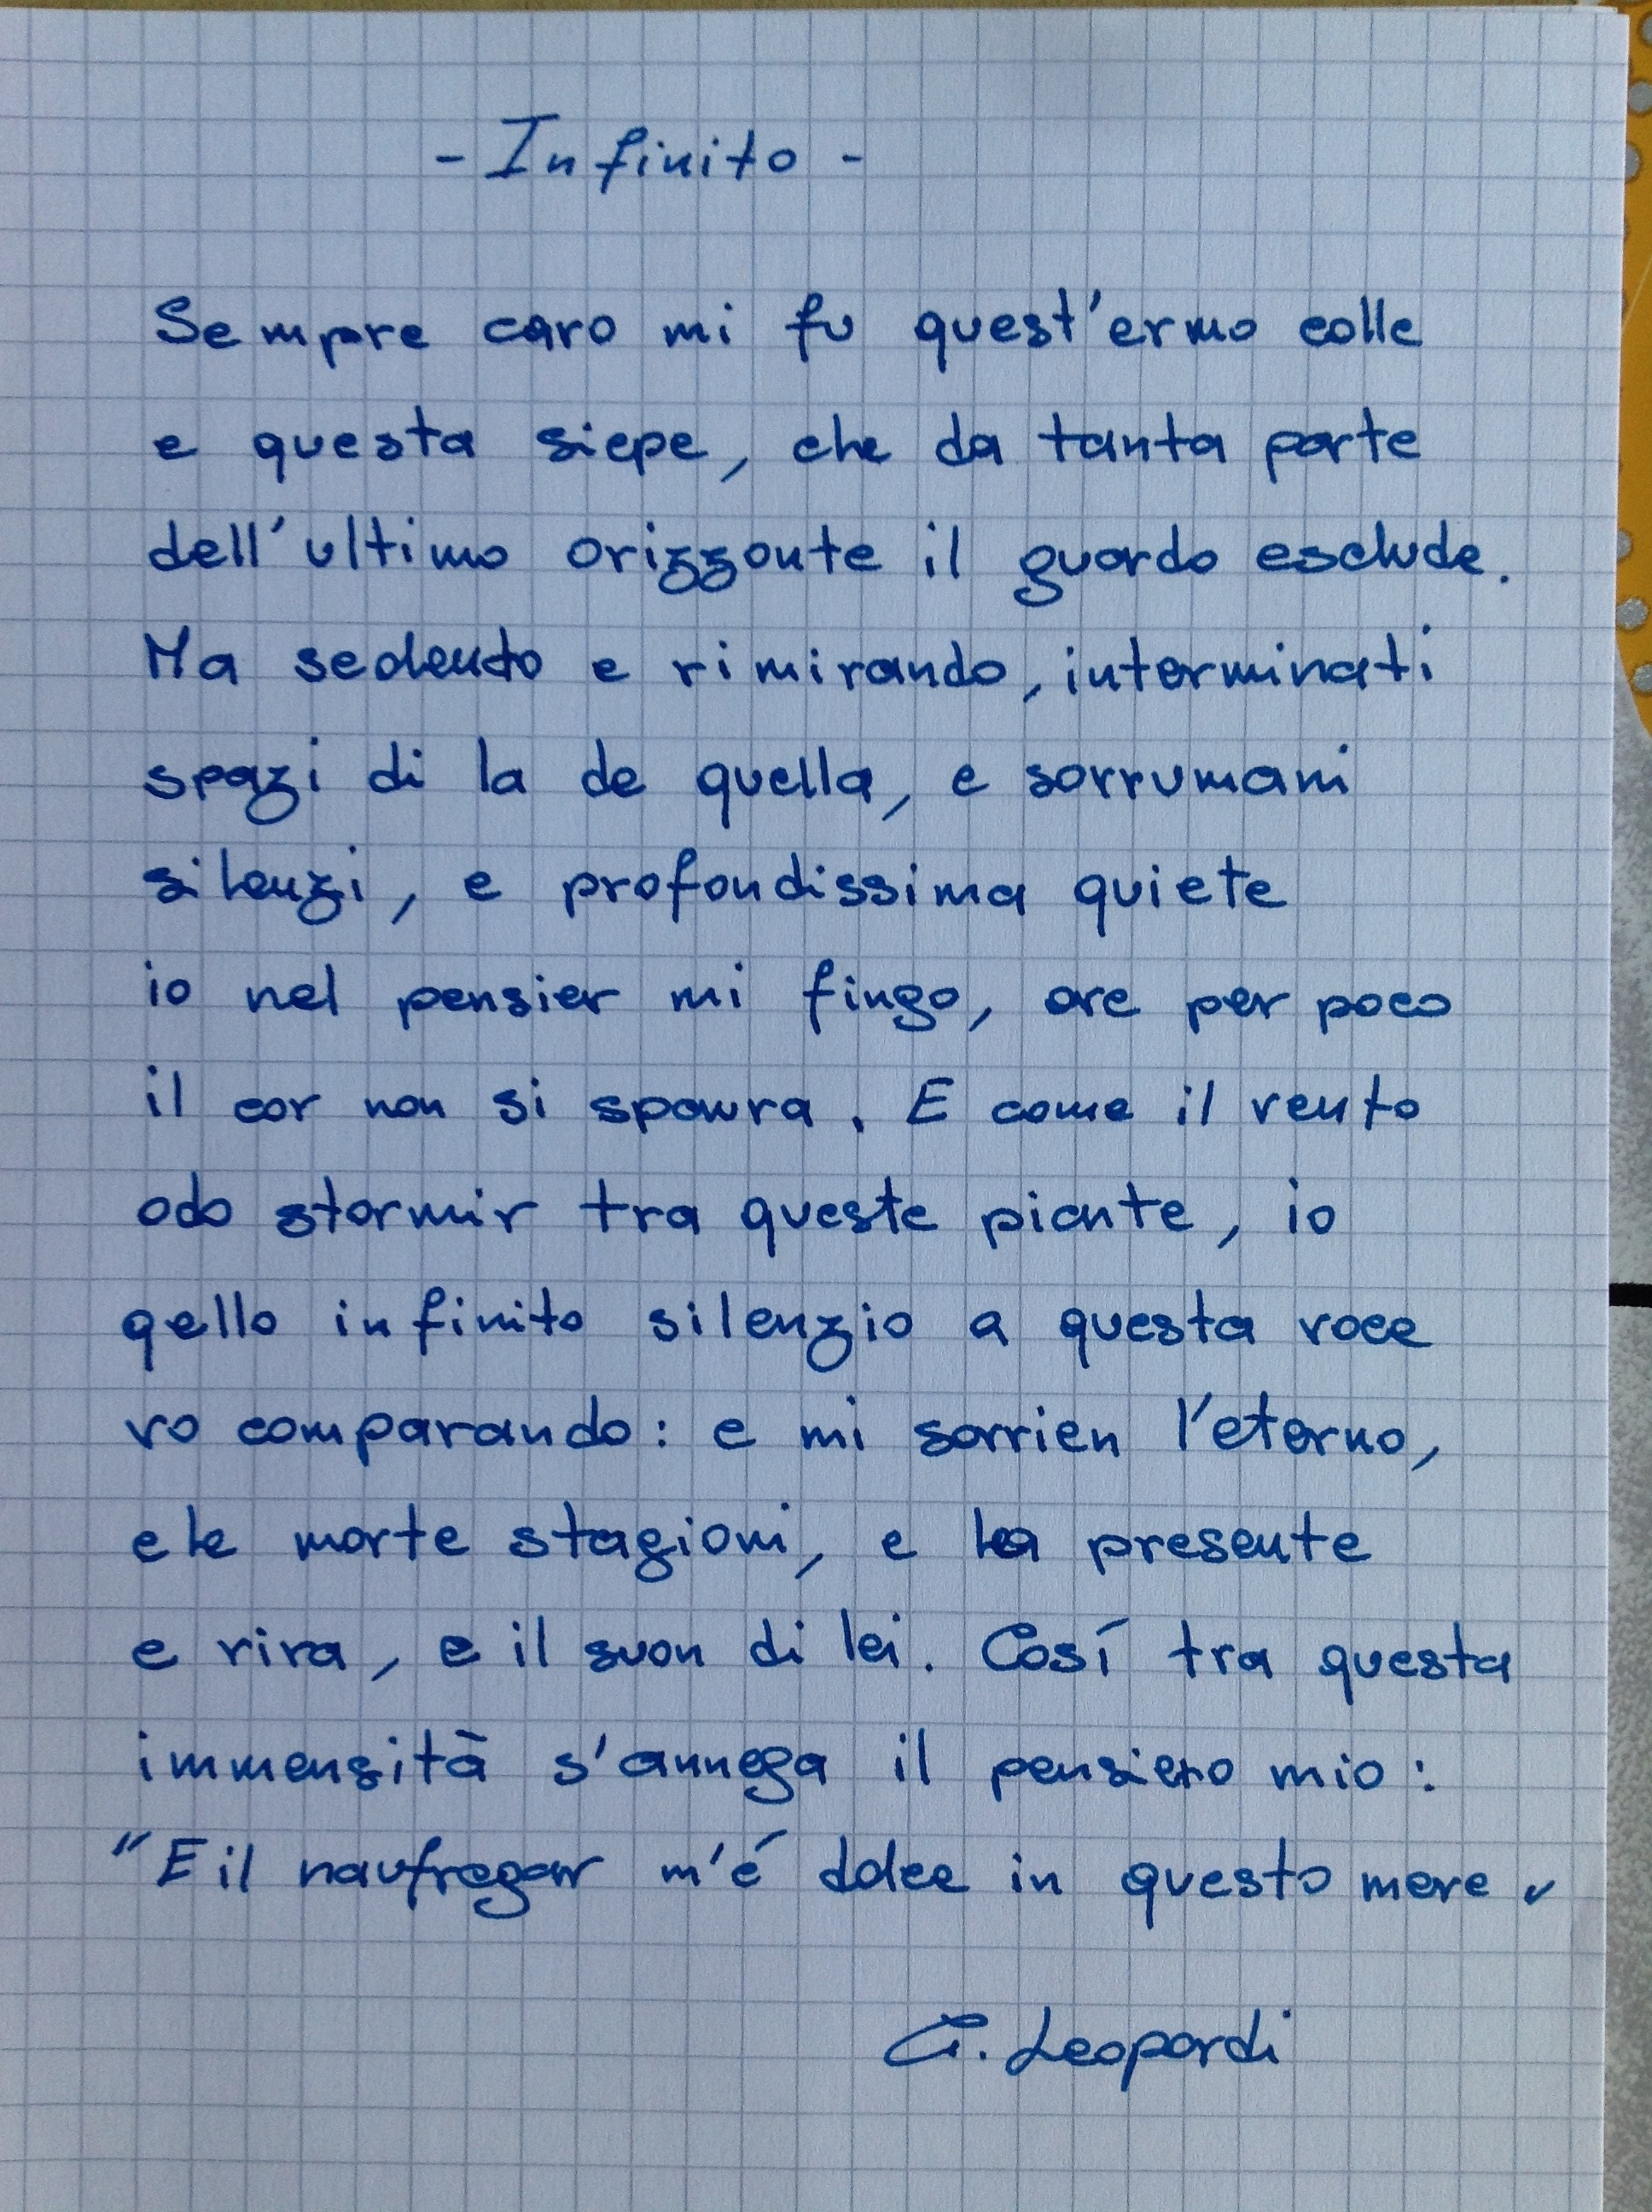 - Infinito -
Sempre caro mi fu quest'ermo colle
e questa siepe, che da tanta parte
dell'ultimo orizzonte il guardo esclude.
Ma sedendo e rimirando, interminati
spazi di la da quella, e sovrumani
silenzi, e profondissima quiete
io nel pensier mi fingo, ove per poco
il cor non si spaura. E come il vento
odo stormir tra queste piante, io
qello infinito silenzio a questa voce
vo comparando: e mi sovvien l'eterno,
e le morte stagioni, e la presente
e viva, e il suon di lei. Così tra questa
immensità s'annega il pensiero mio:
"E il naufragar m'é dolce in questo mare "
G. Leopardi